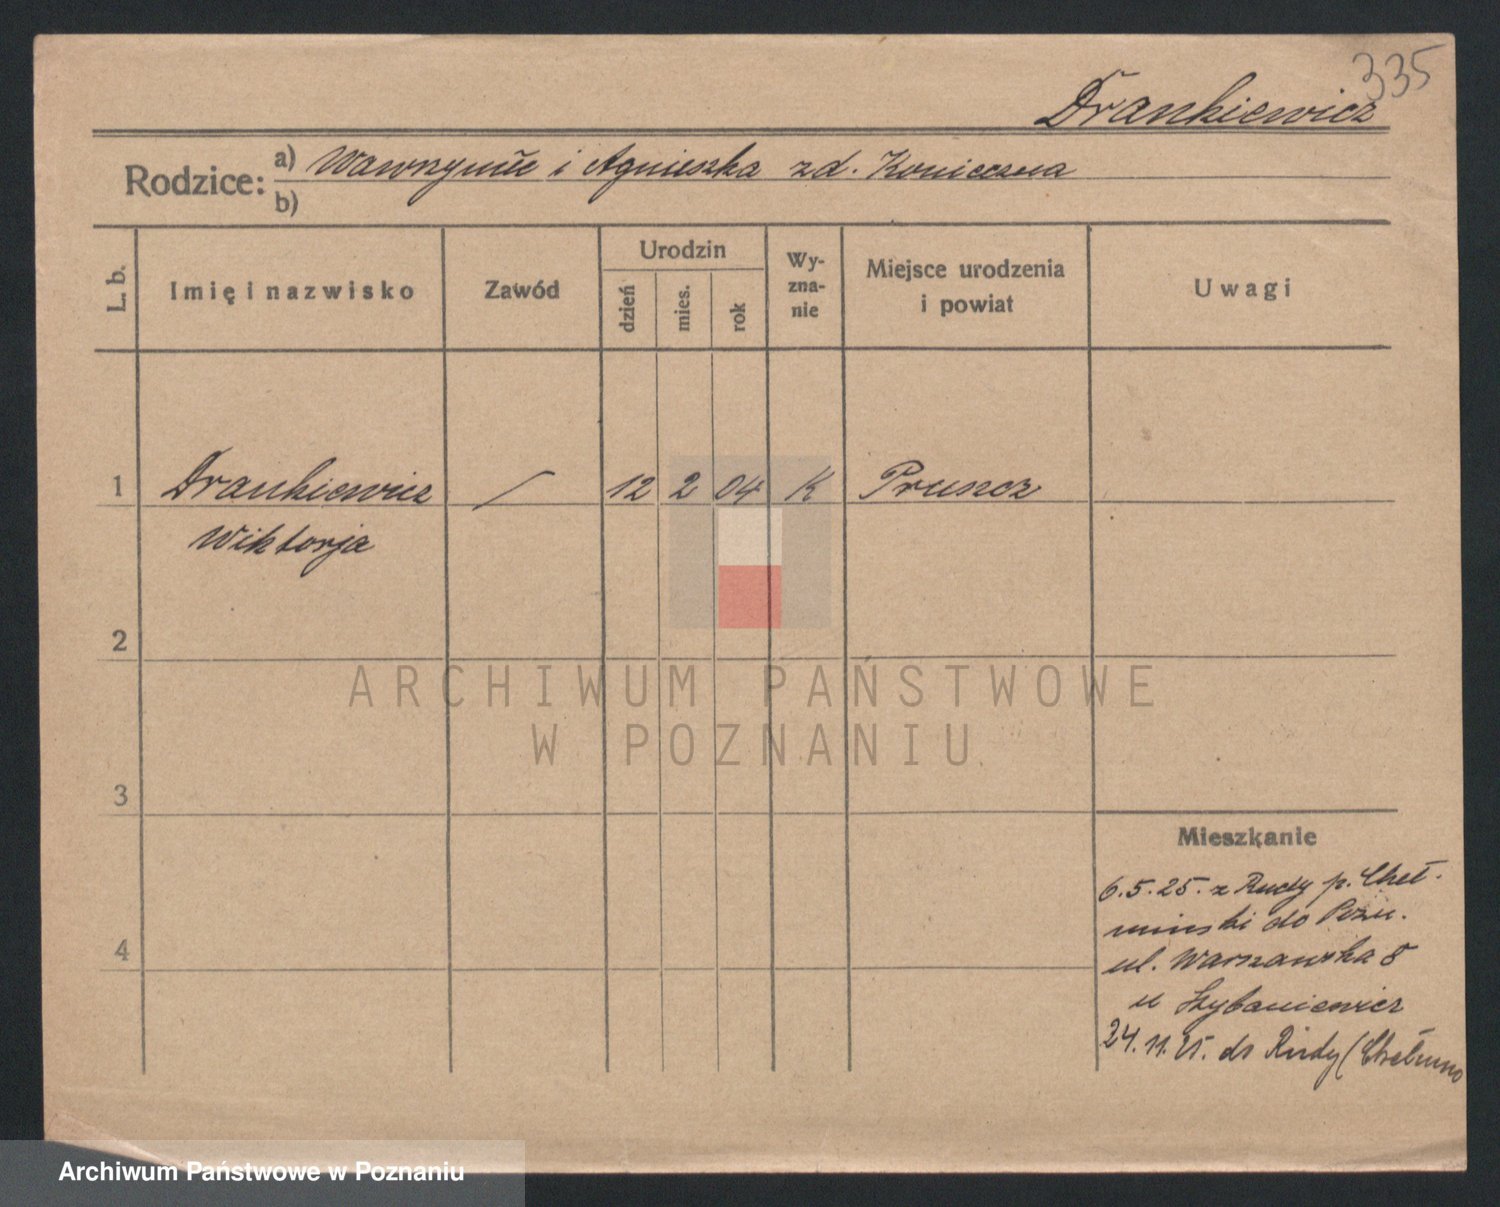 335
Drankiewicz
Rodzice: a) Wawrzyniec i Agnieszka zd. Konieczna
b)
L. b.
Imię i nazwisko
Zawód
Urodzin
dzień
mies.
rok
Wy-
zna-
nie
Miejsce urodzenia
i powiat
Uwagi
1 Drankiewicz / 12 2 04 K Pruncz
Wiktorja
2
3
4
Mieszkanie
6.5.25. z Rudy p. Cheł-
miński do Pozn.
ul. Warszawska 8
u
24.11.25. do Rudy (Chełmno
ARCHIWUM PAŃSTWOWE
W POZNANIU
Archiwum Państwowe w Poznaniu